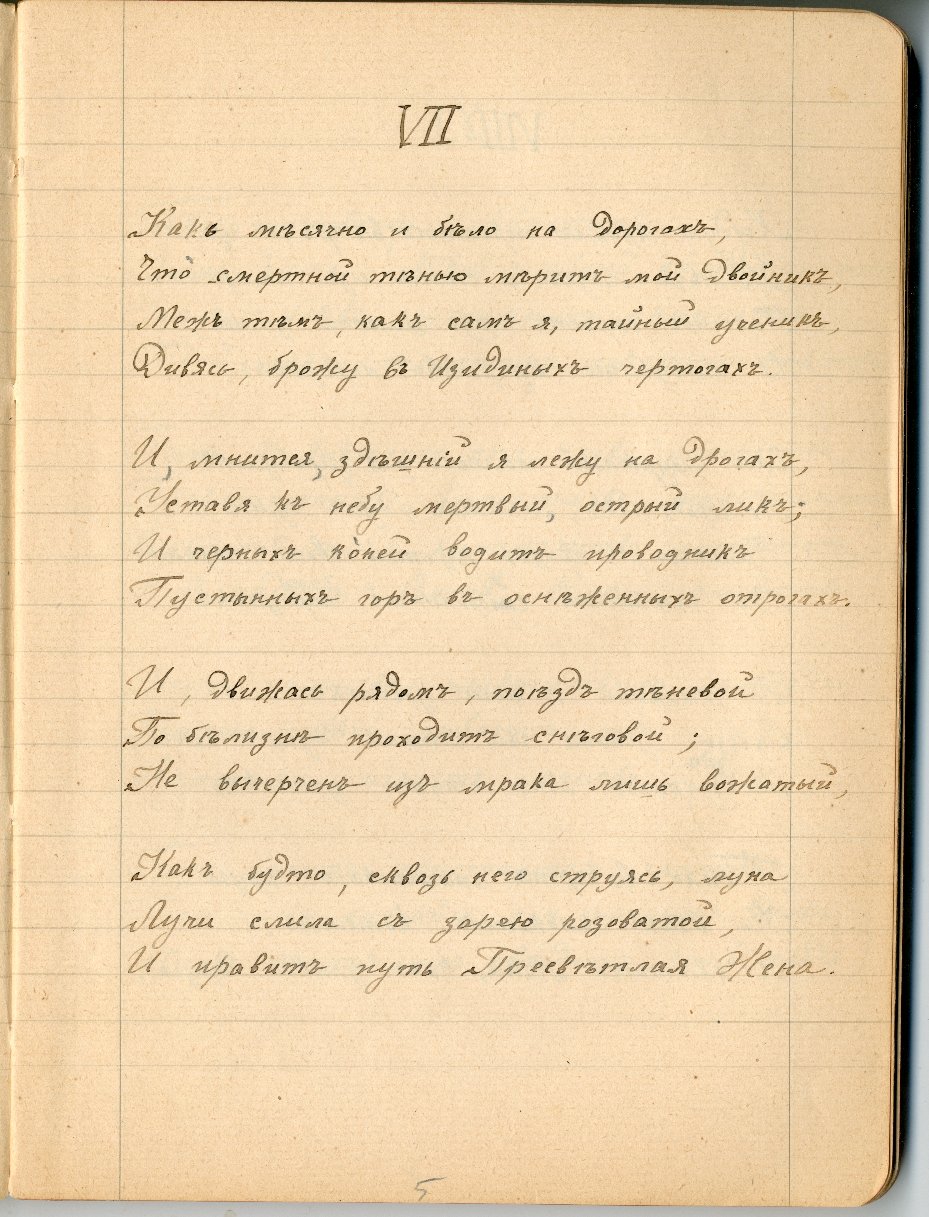 VII
Какъ мѣсячно и бѣло на дорогахъ,
Что смертной тѣнью мѣритъ мой двойникъ,
Межъ тѣмъ, какъ самъ я, тайный ученикъ,
Дивясь, брожу въ Изидиныхъ чертогахъ.
И, мнится, здѣшній я лежу на дрогахъ,
Уставя къ небу мертвый, острый ликъ;
И черныхъ коней водитъ проводникъ
Пустынныхъ горъ въ оснѣженныхъ отрогахъ.
И, движась рядомъ, поѣздъ тѣневой
По бѣлизнѣ проходитъ снѣговой;
Не вычерченъ изъ мрака лишь вожатый,
Какъ будто, сквозь него струясь, луна
Лучи слила съ зарею розоватой,
И правитъ путь Пресвѣтлая Жена.
5